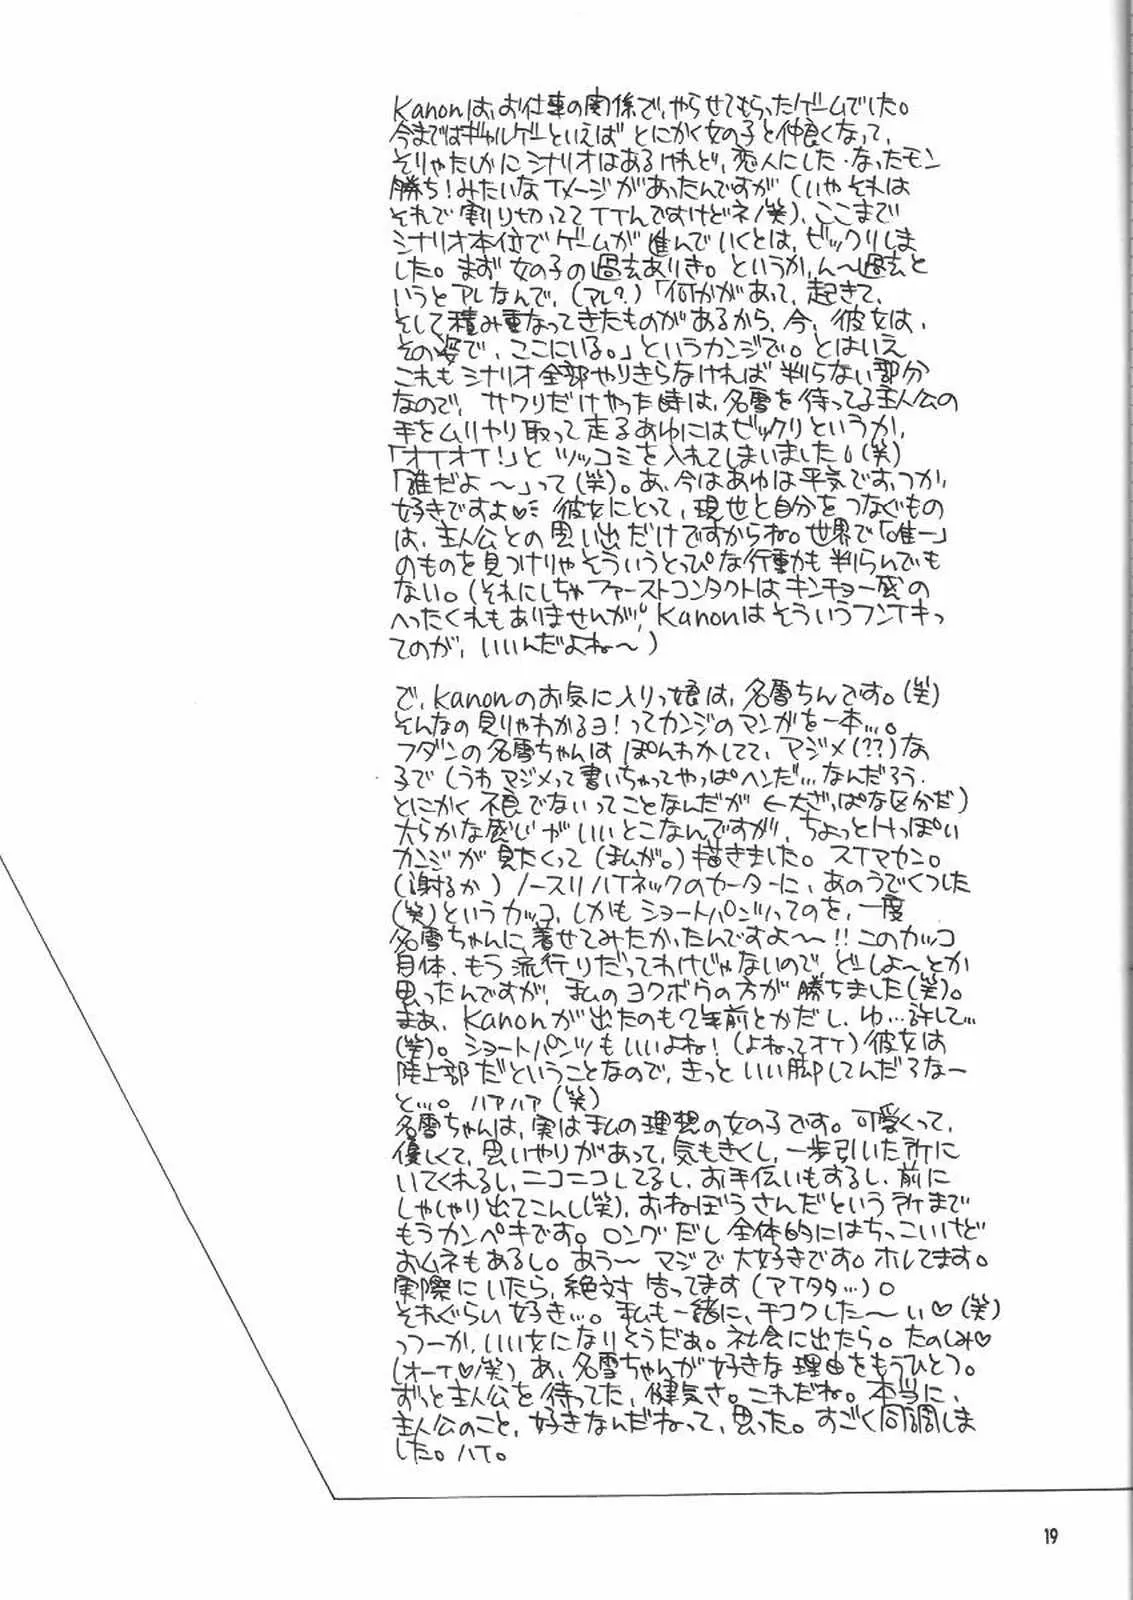 Kanonは、お仕事の関係で、やらせてもらったゲームでした。
今まではギャルゲーといえば とにかく女の子と仲良くなって、
そりゃたしかに シナリオはあるけれど、恋人にした・なったモン
勝ち!みたいなイメージがあったんですが(いやそれは
それで 割り切っててイイんですけどネ/笑)、ここまで
シナリオ本位でゲームが 進んでいくとは、ビックリしま
した。まず 女の子の過去ありき。というか、ん〜過去と
いうとアレなんで、(アレ?)「何かがあって、起きて、
そして積み重なってきたものがあるから、今、彼女は、
その姿で、ここにいる。」というカンジで。とはいえ
これも シナリオ全部やりきらなければ 判らない部分
なので、サワリだけやった時は、名雪を待ってる主人公の
手をムリヤリ取って走るあゆにはビックリというか、
「オイオイ!」と ツッコミを入れてしまいました。(笑)
「誰だよ〜」って(笑)。あ、今はあゆは平気です、つか、
好きですよ♡ 彼女にとって、現世と自分をつなぐもの
は、主人公との思い出だけですからね。世界で「唯一」
のものを見つけりゃそういうとっぴな行動も判らんでも
ない。(それにしちゃファーストコンタクトはキンチョー感の
へったくれもありませんが。Kanonはそういうフンイキっ
てのが、いいんだよね〜)
で、Kanonのお気に入りっ娘は、名雪ちんです。(笑)
そんなの見りゃわかるヨ!ってカンジのマンガを一本…。
フダンの名雪ちゃんは ぽんわかしてて、マジメ(??)な
子で(うわマジメって書いちゃってやっぱヘンだ…なんだろう、
とにかく 不良でないってことなんだが ←大ざっぱな区分だ)
大らかな感じがいいとこなんですが、ちょっとHっぽい
カンジが見たくって(まんが。)描きました。スイマセン。
(謝るか)ノースリハイネックのセーターに、あのうでくつした
(笑)というカッコ、しかも ショートパンツってのを、一度
名雪ちゃんに着せてみたかったんですよ〜!!このカッコ
自体、もう流行りだってわけじゃないので、どーしよ〜とか
思ったんですが、私のヨクボウの方が勝ちました(笑)。
まあ、Kanonが出たのも2年前とかだし、ゆ…許して…
(笑)。ショートパンツもいいよね!(よねってオイ)彼女は
陸上部だということなので、きっと いい脚してんだろなー
と…。ハアハア(笑)
名雪ちゃんは、実は私の理想の女の子です。可愛くって、
優しくて、思いやりがあって、気もきくし、一歩引いた所に
いてくれるし、ニコニコしてるし、お手伝いもするし、前に
しゃしゃり出てこんし(笑)、おねぼうさんだという所まで
もうカンペキです。ロングだし全体的にはちっこいけど
おムネもあるし。あう〜 マジで大好きです。ホレてます。
実際にいたら、絶対 告ってます(アイタタ…)。
それぐらい好き…。私も一緒に、チコクした〜い♡(笑)
っつーか、いい女になりそうだぁ。社会に出たら。たのしみ♡
(オーイ♡/笑)あ、名雪ちゃんが好きな理由をもうひとつ。
ずっと主人公を待ってた、健気さ。これだね。本当に、
主人公のこと、好きなんだねって、思った。すごく同調しま
した。ハイ。
19